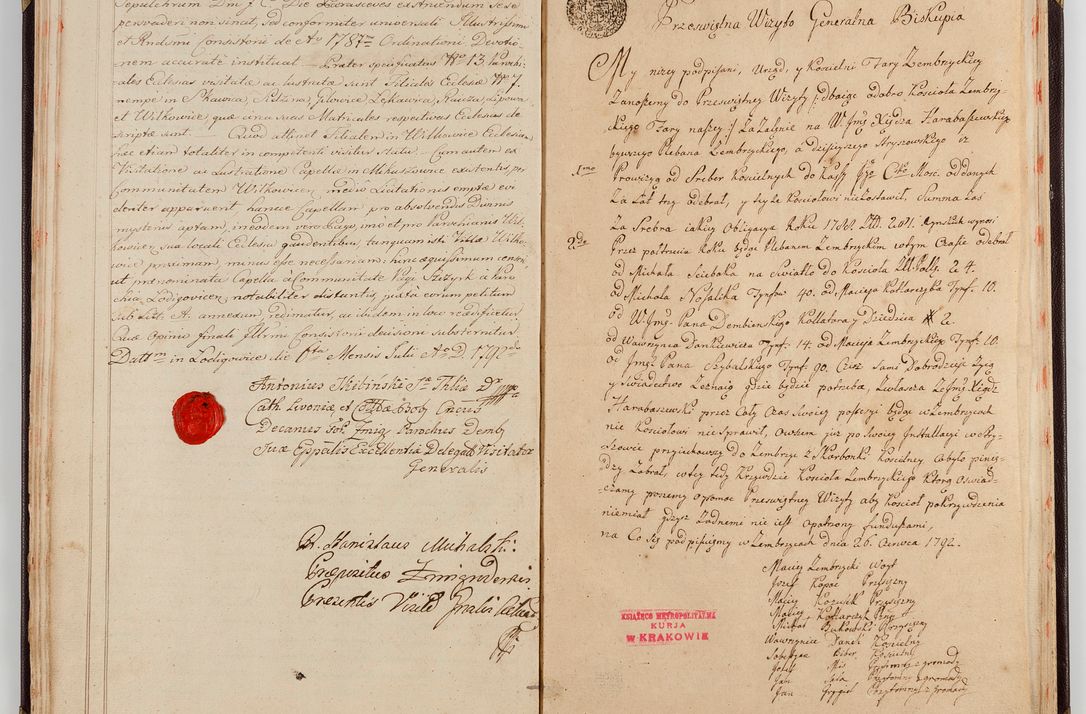 Sepulchrum Dni J. C. Die
persvaderi non sinat, sed conformiter universali Illustrissimi
et Rndsmi Consistorii de Ao 1787mo Ordinationi Devotio-
nem accurate instituat. Præter specificatas No 13. Parochi-
ales Ecclesias visitatæ ac lustratæ sunt Filiales Ecclesiæ No 7.
nempe in Skawica, Sidzina, Gilowice, Lękawica, Rauza, Lipowa,
et Wilkowice, quæ circa suas Matricales respectivas Ecclesias de-
scriptæ sunt. Quod attinet Filialem in Wilkowice Ecclesiam
hæc etiam totaliter in competenti visitur statu. Cum autem ex
Visitatione ac Lustratione Capellæ in Mikuszowice existentis per
Communitatem Wilkovicen. medio Licitationis emptæ evi-
denter appareat hance Capellam pro absolvendis Divinis
mysteriis aptam, in eodem vero Pago, imo et pro Parochianis Wil-
kovicen sua locali Ecclesia gaudentibus, tanquam isti Villæ Wilko-
wice proximam, minus esse necessariam: hinc æquissimum
ut prænominata Capella a Communitate Pagi a Paro-
chia Lodigovicen. notabiliter distantis, juxta eorum petitum
sub Litt. A. annexum, redimatur, ac ibidem in loco reædificetur.
Quæ Opinio finali Illrmi Consistorii decisioni substernitur.
Dattm in Lodigowice die 6ta Mensis Julii Ao D. 1792do
Antonius Skibiński Sæ Thliæ Dr
Cath. Livoniæ et
Decanus Parochus Demb.
Suæ Eppalis Excellentiæ Delegatus Visitator
Generalis
Stanislaus Michalski
Præpositus
Præsentis Visitis Gnalis
Przeswiętna Wizyto Generalna Biskupia
My nizey podpisani, Urząd, y Koscielni Fary Zembrzyckiey
Zanosiemy do Przeswiętney Wizyty /: dbaiąc o dobro Kościoła Zembrzy-
ckiego Fary naszey :/ Zażalenie na W. Jmę Xiędza Harabaszewskiego
bywszego Plebana Zembrzyckiego, a dzisieyszego Stryszowskiego iz
1mo
Prowizyą od Sreber Koscielnych do kassy Jego Csko Mosc. oddanych
Za Lat trzy odebrał, y teyże Kościołowi nie zostawił, Summa zas
Za Srebra iako Obligacya Roku 1788.
2do
Przez połtrzecia Roku będąc Plebanem Zembrzyckim w tym Czasie odebrał
od Michała Scieboka na Swiatło do Kościoła
od Michała Nosalika Tynfow 40. od Macieja Kotlarczyka Tynf. 10.
od W. Jmę Pana Dembienskiego Kollatora y Dziedzica
od Wawrzynca Dankiewicza Tynf. 14. od Macieja Zembrzyckiego Tynf. 10.
od Jmę Pana Czybalskiego Tynf. 90. Czes sami Dobrodzieje Żyią
y Swiadectwo Zeznaią gdzie będzie potrzeba, Zwłaszcza że Jmę Xiądz
Harabaszewski przez Cały Czas Swoiey possesyi będąc w Zembrzycach
nic Kościołowi nie sprawił, Owszem juz po Swoiey Installacyi w Stry-
szowie przyiechawszy do Zembrzyc z Skarbonki Koscielney Co było pinię-
dzy Zabrał, w tey tedy Krzywdzie Kościoła Zembrzyckiego Którą Oswiad-
czamy prosiemy o pomoc Przeswiętney Wizyty aby Kościoł pokrzywdzenia
niemiał gdysz Zadnemi nie iest Opatrzony funduszami,
na Co Się podpisuiemy w Zembrzycach dnia 26. Czerwca 1792.
Maciey Zembrzycki Woyt
Jozef Kopac Przysiezny
Maciey Kozusik Przysiezny
Maciey Kotlarczyk Przy.
Michał Bukowski Przysiezny
Wawrzyniec Danek Koscielny
Sobestyan Biber Koscielny
Jozef Mis Przytomny z gromady
Jan Sala Przytomny z gromady
Jan Grygiel Przytomny z Gromady
KSIĄŻĘCO METROPOLITALNA
KURJA
W KRAKOWIE